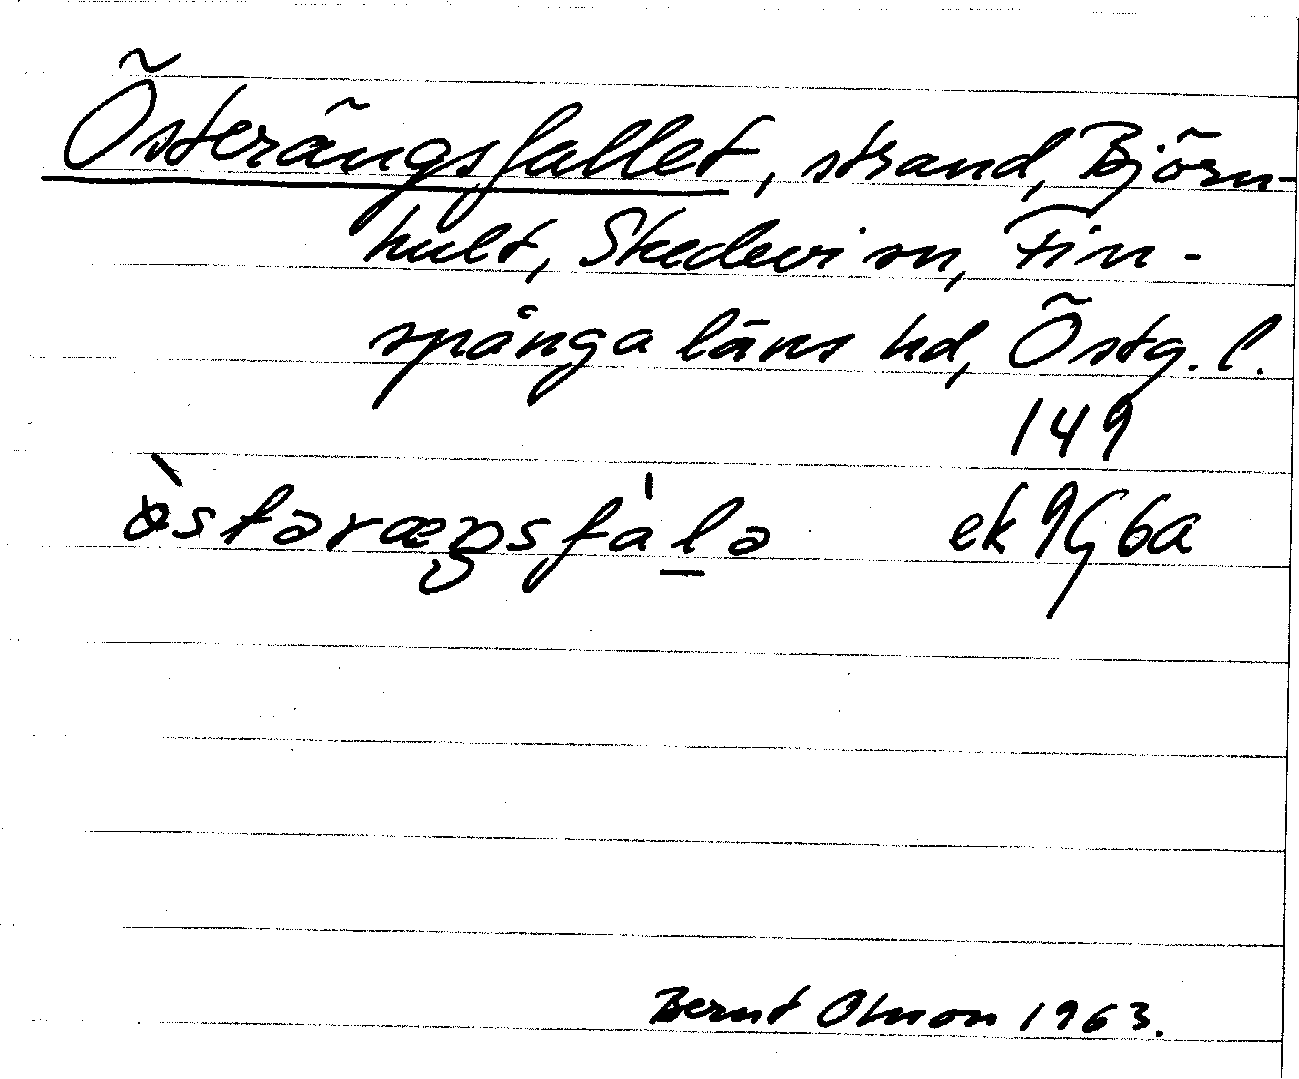 Österängsfallet, strand, Björn-
hult, Skedevi sn, Fin-
spånga läns hd, Östg. l.
149
ek 9G 6a
Bernt Olsson 1963.